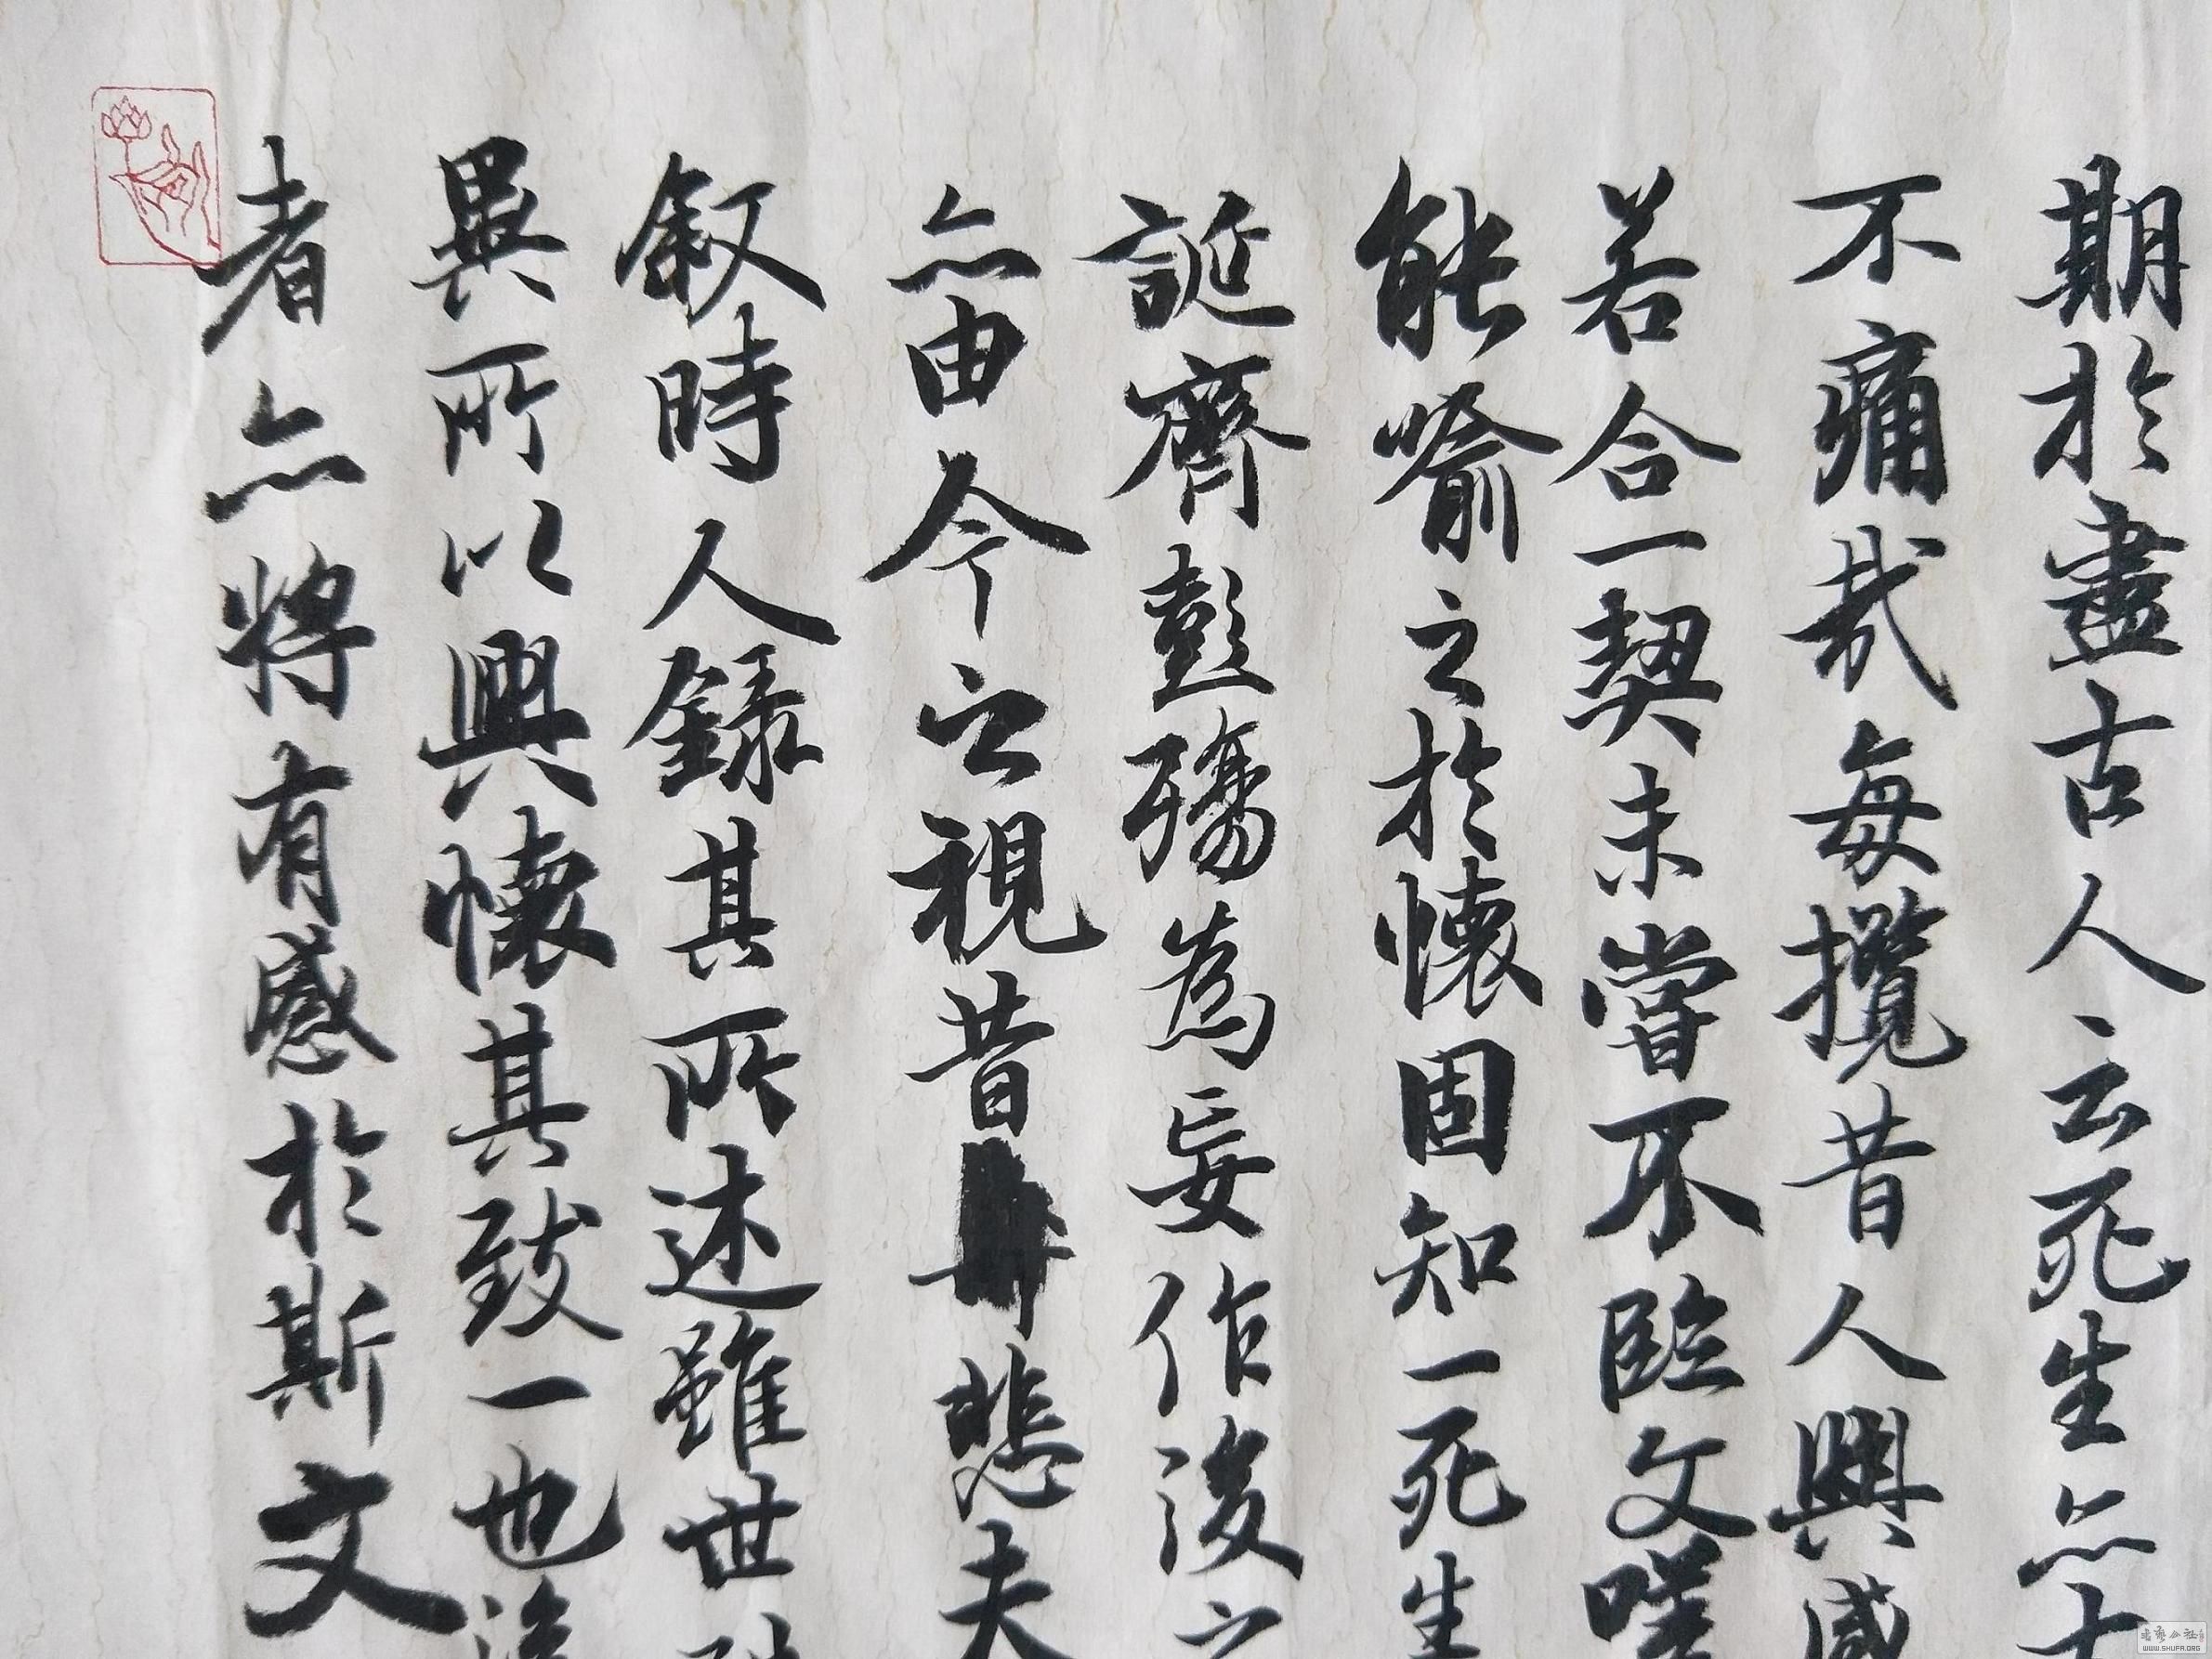 期於盡古人云死生亦大
不痛哉每攬昔人興感
若合一契未嘗不臨文嗟
能喻之於懷固知一死生
誕齊彭殤為妄作後之
亦由今之視昔悲夫
叙時人錄其所述雖世殊
異所以興懷其致一也後
者亦將有感於斯文
WWW.SHUFA.ORG